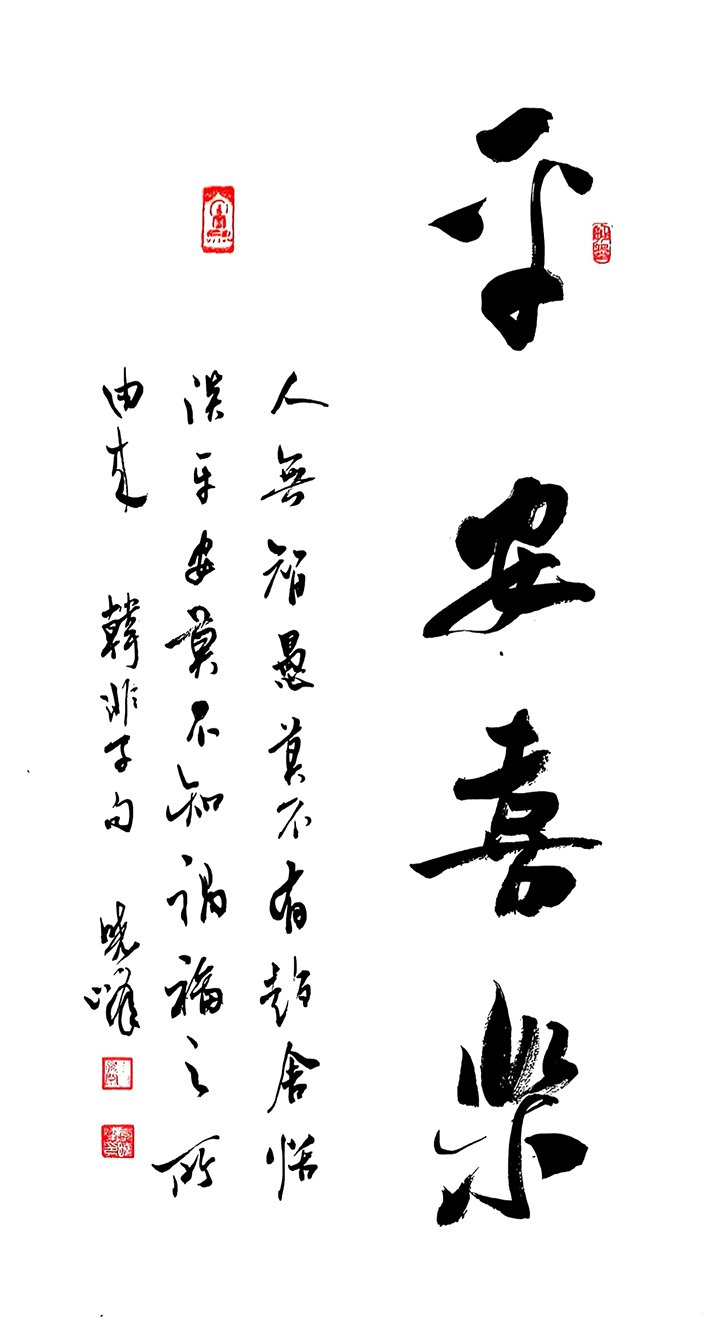 平安喜樂
人無智愚莫不有趨舍恬
淡平安莫不知禍福之所
由來 韓非子句 曉峰